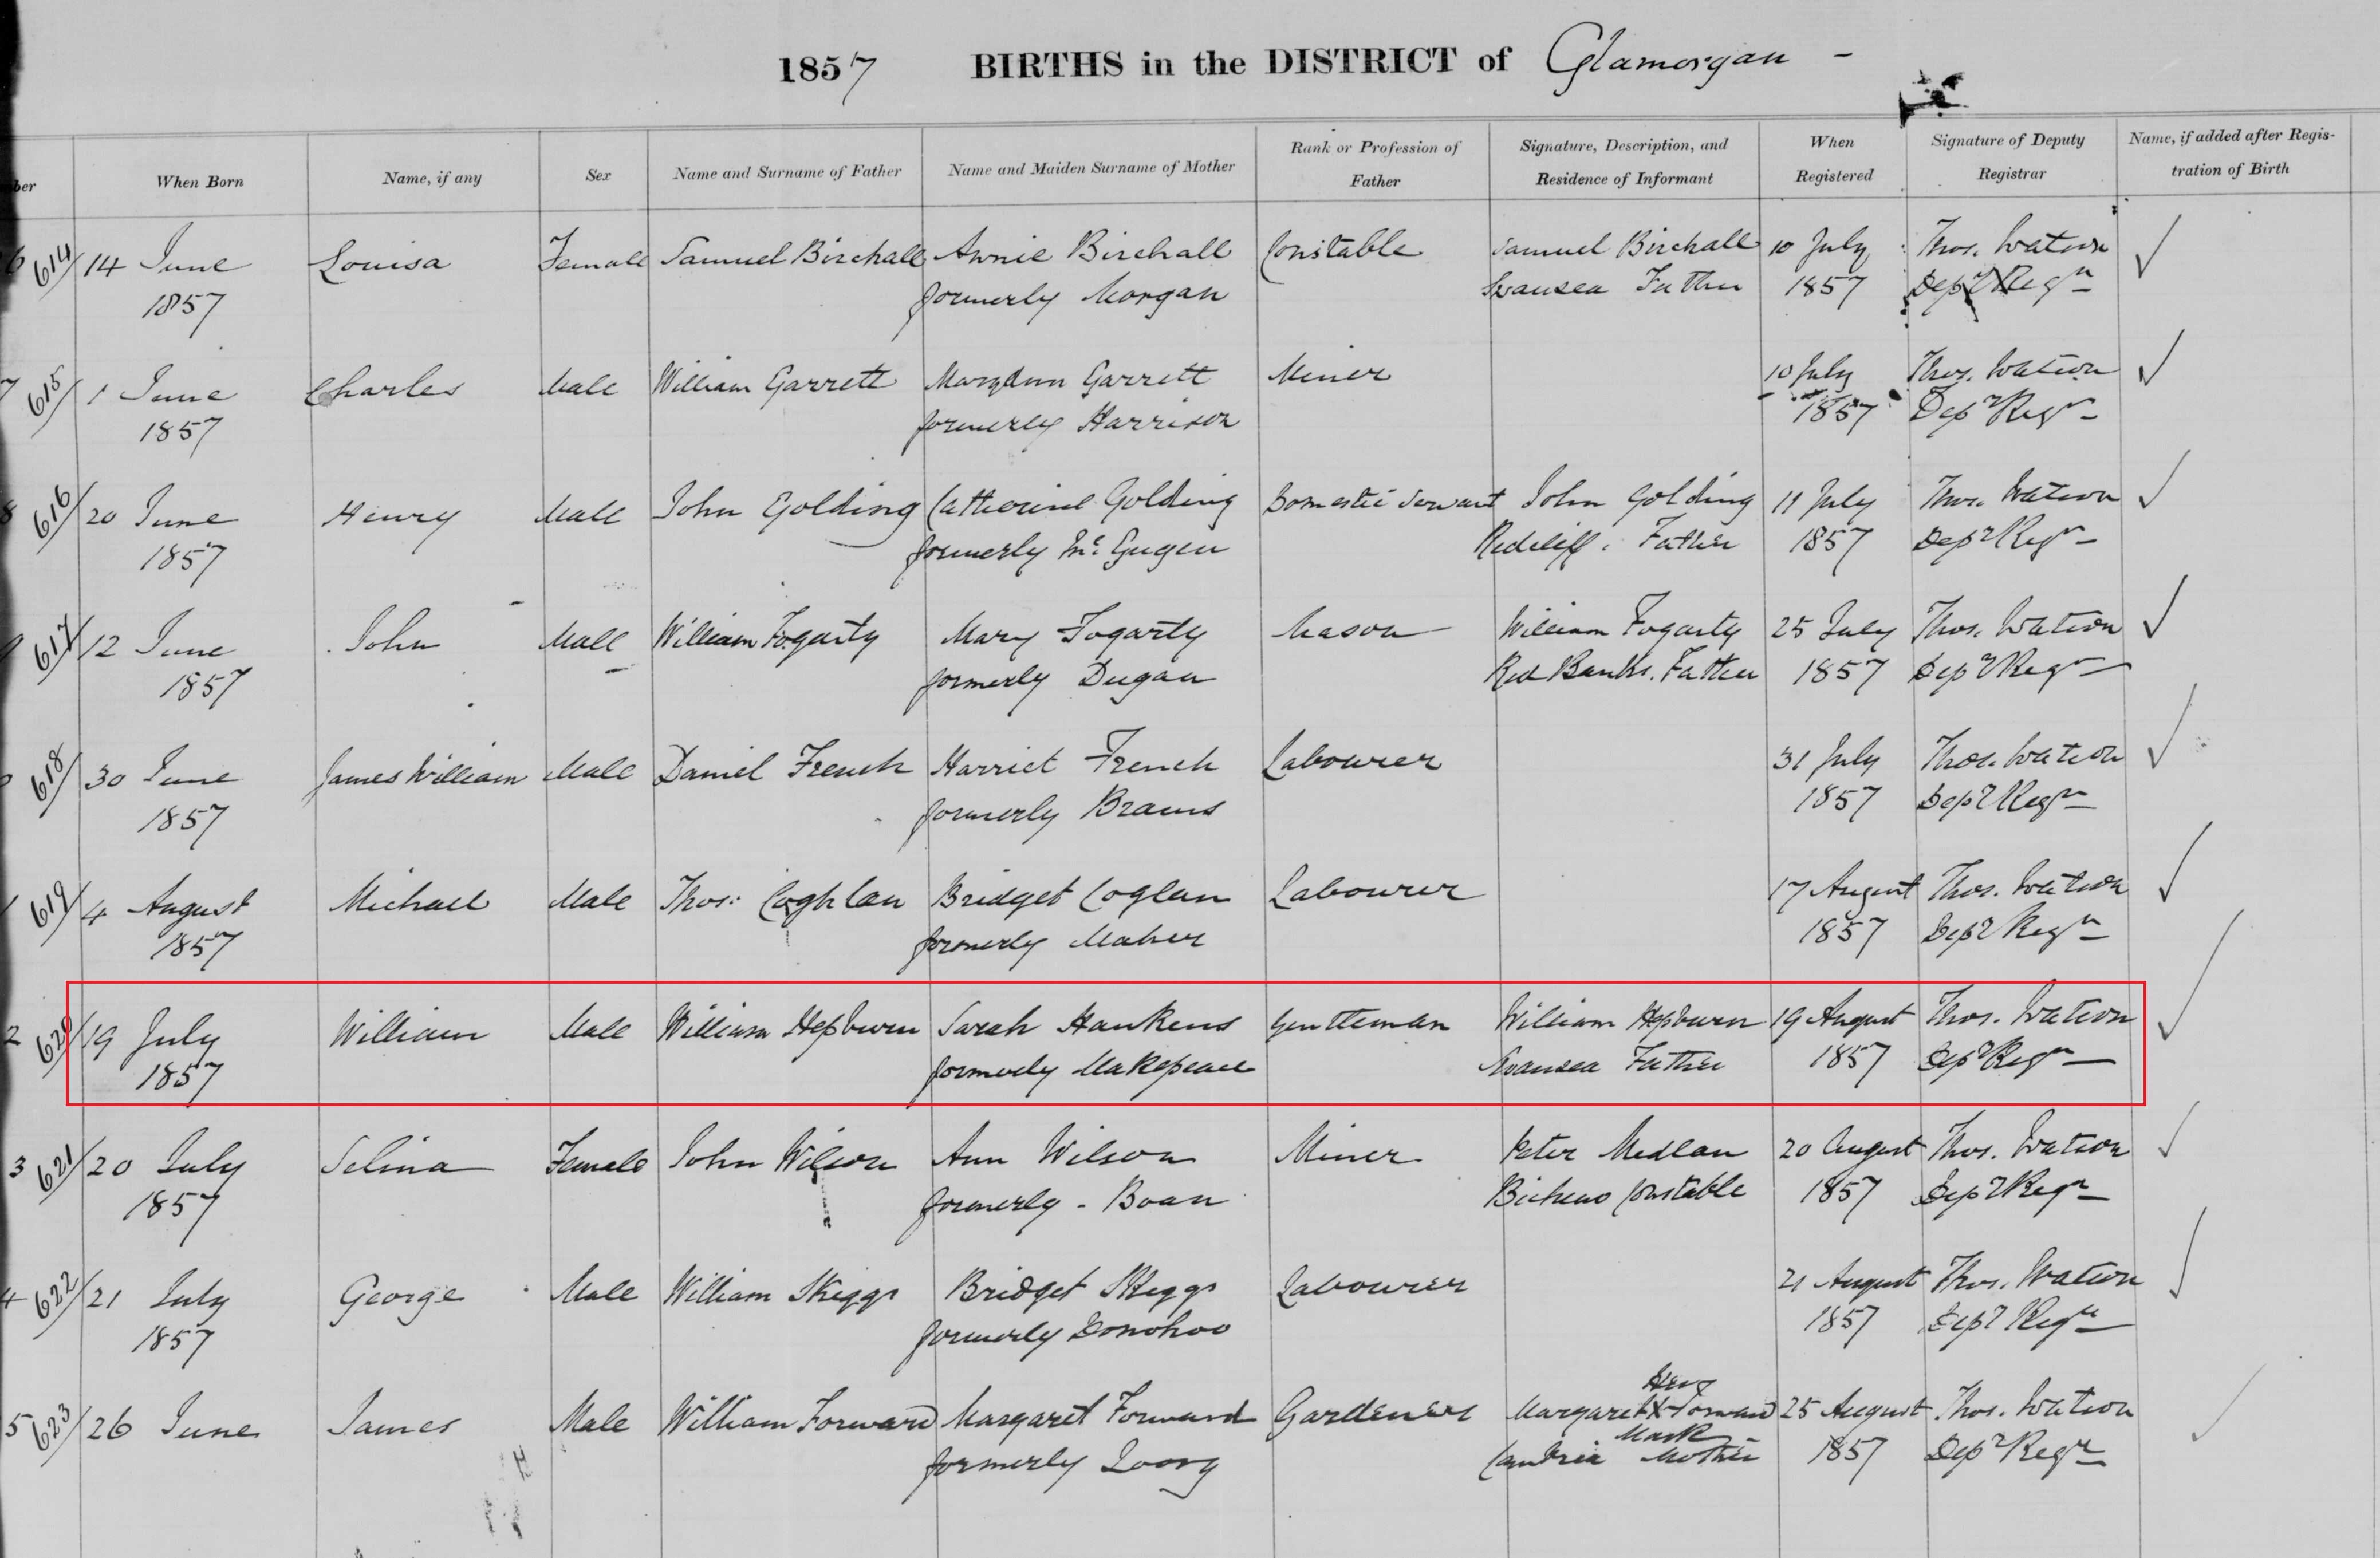 1857 BIRTHS in the DISTRICT of Glamorgan -
ber When Born Name, if any Sex Name and Surname of Father Name and Maiden Surname of Mother Rank or Profession of Father Signature, Description, and Residence of Informant When Registered Signature of Deputy Registrar Name, if added after Registration of Birth
6 614/ 14 June Louisa Female Samuel Birchall Annie Birchall Constable Samuel Birchall 10 July Thos. Watson ✓
1857 formerly Morgan Swansea Father 1857 Depy Regr
7 615/ 1 June Charles Male William Garrett Maryann Garrett Miner 10 July Thos. Watson ✓
1857 formerly Harrison 1857 Depy Regr
8 616/ 20 June Henry Male John Golding Catherine Golding Domestic Servant John Golding 11 July Thos. Watson ✓
1857 formerly Mc Gugen Redcliff. Father 1857 Depy Regr
9 617/ 12 June John Male William Fogarty Mary Fogarty Mason William Fogarty 25 July Thos. Watson ✓
1857 formerly Dugan Red Banks. Father 1857 Depy Regr
618/ 30 June James William Male Daniel French Harriet French Labourer 31 July Thos. Watson ✓
1857 formerly Brams 1857 Depy Regr
1 619/ 4 August Michael Male Thos: Coghlan Bridget Coglan Labourer 17 August Thos. Watson ✓
1857 formerly Maher 1857 Depy Regr
2 620/ 19 July William Male William Hepburn Sarah Hankens Gentleman William Hepburn 19 August Thos. Watson ✓
1857 formerly Makepeace Swansea Father 1857 Depy Regr
3 621/ 20 July Selina Female John Wilson Ann Wilson Miner Peter Medlan 20 August Thos. Watson ✓
1857 formerly - Boan Bicheno Constable 1857 Depy Regr
4 622/ 21 July George Male William Skeggs Bridget Skeggs Labourer 21 August Thos. Watson ✓
1857 formerly Donohoo 1857 Depy Regr
Her
5 623/ 26 June James Male William Forward Margaret Forward Gardener Margaret X Forward 25 August Thos. Watson ✓
Mark
formerly Cambria Mother 1857 Depy Regr